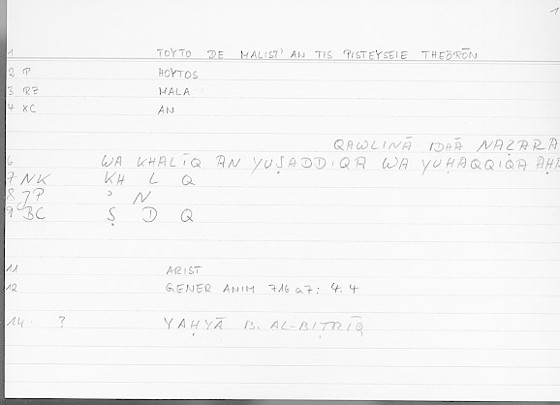 1
1 TOYTO DE MALIST' AN TIS PISTEYSEIE THEŌRŌN
2 P HOYTOS
3 RZ MALA
4 XC AN
QAWLINĀ IDĀĀ NAẒARA
6 WA KHALĪQ AN YUṢADDIQA WA YUḤAQQIQA
7 NK KH L Q
8 JP ' N
9 BC Ṣ D Q
11 ARIST
12 GENER ANIM 716 a7: 4.4
14. ? YAḤYĀ B. AL-BIṬRĪQ